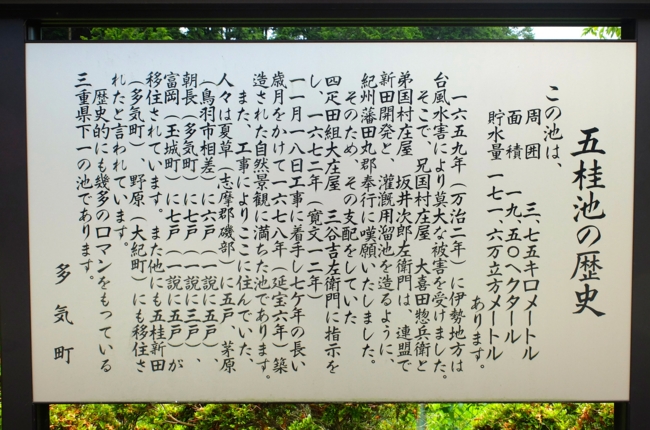 五桂池の歴史
この池は、
周囲　三、七五キロメートル
面積　一九、五〇ヘクタール
貯水量　一七一、六万立方メートル
あります。
一六五九年（万治二年）に伊勢地方は
台風水害により莫大な被害を受けました。
そこで、兄国村庄屋　大喜田惣兵衛と
弟国村庄屋　坂井次郎左衛門は、連盟で
新田開発と、灌漑用溜池を造るように、
紀州藩田丸郡奉行に嘆願いたしました。
そのため、その支配をしていた
四疋田組大庄屋　三谷吉左衛門に指示を
し、一六七二年（寛文一二年）
一一月一八日工事に着手し七ケ年の長い
歳月をかけて一六七八年（延宝六年）築
造された自然景観に満ちた池であります。
また、工事によりここに住んでいた、
人々は夏草（志摩郡磯部）に五戸、茅原
（鳥羽市相差）に六戸（一説に五戸）、
朝長（多気町）に七戸（一説に三戸）、
富岡（玉城町）に七戸（一説に五戸）が
移住されています。また他にも五桂新田
（多気町）、野原（大紀町）にも移住さ
れたと言われています。
歴史的にも幾多のロマンをもっている
三重県下一の池であります。
多気町